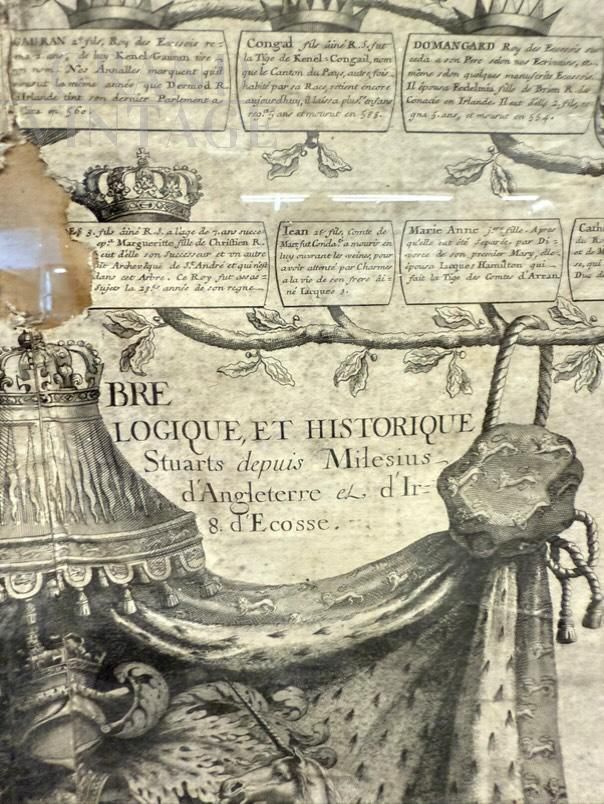 GAURAN 2e fils, Roy des Ecossis re-
de luy Kenel-Gauran tire
nom. Nos Annalles marquent qu'il
mourut la même année que Dermod R.
Irlande tint son dernier Parlement a
en 560.
Congal fils âiné R.S. fut
la Tige de Kenel-Congail, nom
que le Canton du Pays, autre fois
habité par sa Race, retient encore
aujourdhuy, il laissa plusrs enfans
ans et mourut en 585.
DOMANGARD Roy des Ecossis suc
ceda a son Pere selon nos Ecrivains, et
même selon quelques manuscrits Ecossis.
Il épousa Fedelmia fille de Brien R. de
Conacie en Irlande. Il eut d'elle 2, fils, re
gna 5. ans, et mourut en
VINTAGE
3. fils âiné R.S. a l'age de 7. ans succe-
Margueritte fille de Christien R.
eut d'elle son Successeur et un autre
Archevêque de St. André et qui n'est
dans cet Arbre. Ce Roy fut assas-
Sujets la année de son regne
Iean 2e fils, Comte de
Marr, fut Conda. a mourir en
luy ouvrant les veines, pour
avoir attenté par Charmes
a la vie de son frere âi-
né Iacques 3.
Marie Anne fille. Apres
qu'elle eut été Separée par Di-
vorce de son premier Mary, elle
épousa Iacques Hamilton qui
fait la Tige des Comtes d'Arran.
Cath
du
et de
se, qui
Duc d
BRE
LOGIQUE, ET HISTORIQUE
Stuarts depuis Milesius
d'Angleterre et d'Ir-
8. d'Ecosse.